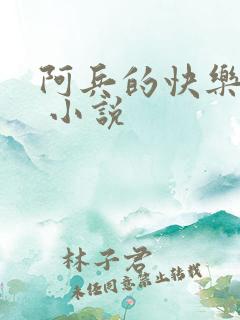 阿兵的快樂
小說
林子君
未经同意禁止转载